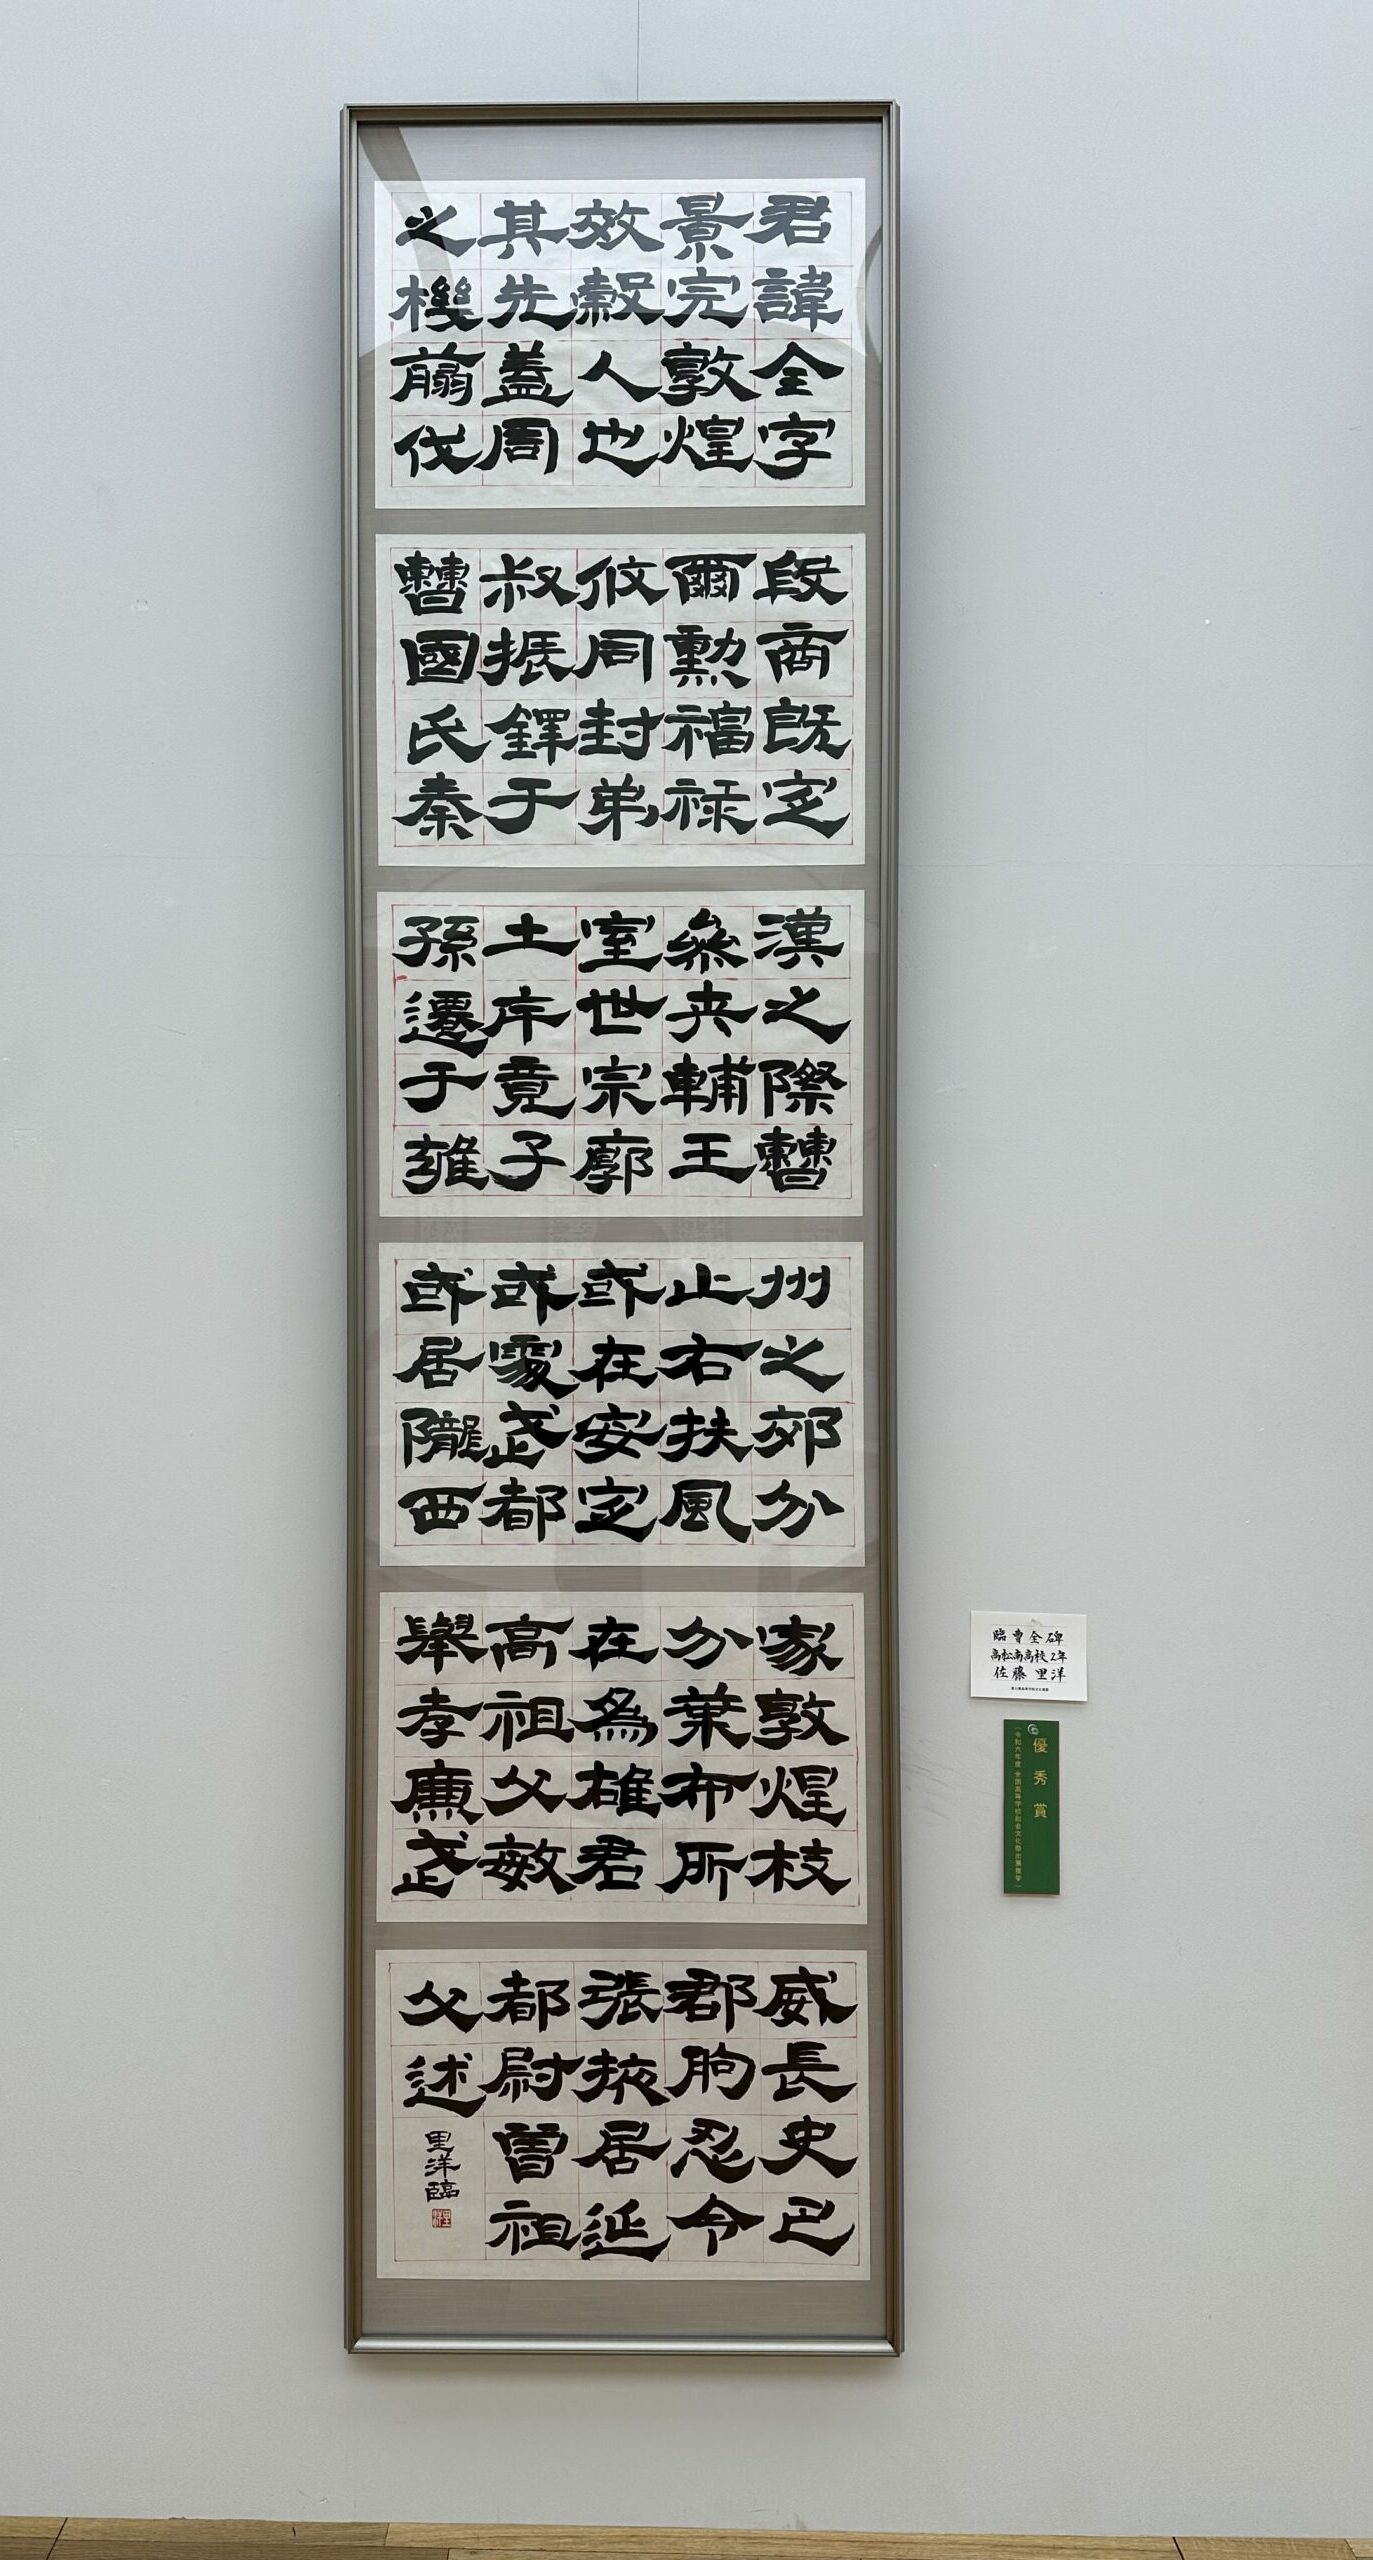 君諱全字
景完敦煌
效穀人也
其先蓋周
之機翦伐
段商既定
爾勲福禄
攸同封弟
叔振鐸于
曹國氏秦
漢之際曹
参夾輔王
室世宗廓
土斥竟子
孫遷于雍
州之郊分
止右扶風
或在安定
或處武都
或居隴西
家敦煌枝
分葉布所
在為雄君
高祖父敏
舉孝廉武
威長史巴
郡朐忍令
張掖居延
都尉曾祖
父述
里洋臨
臨曹全碑
高松南高校2年
佐藤里洋
優秀賞